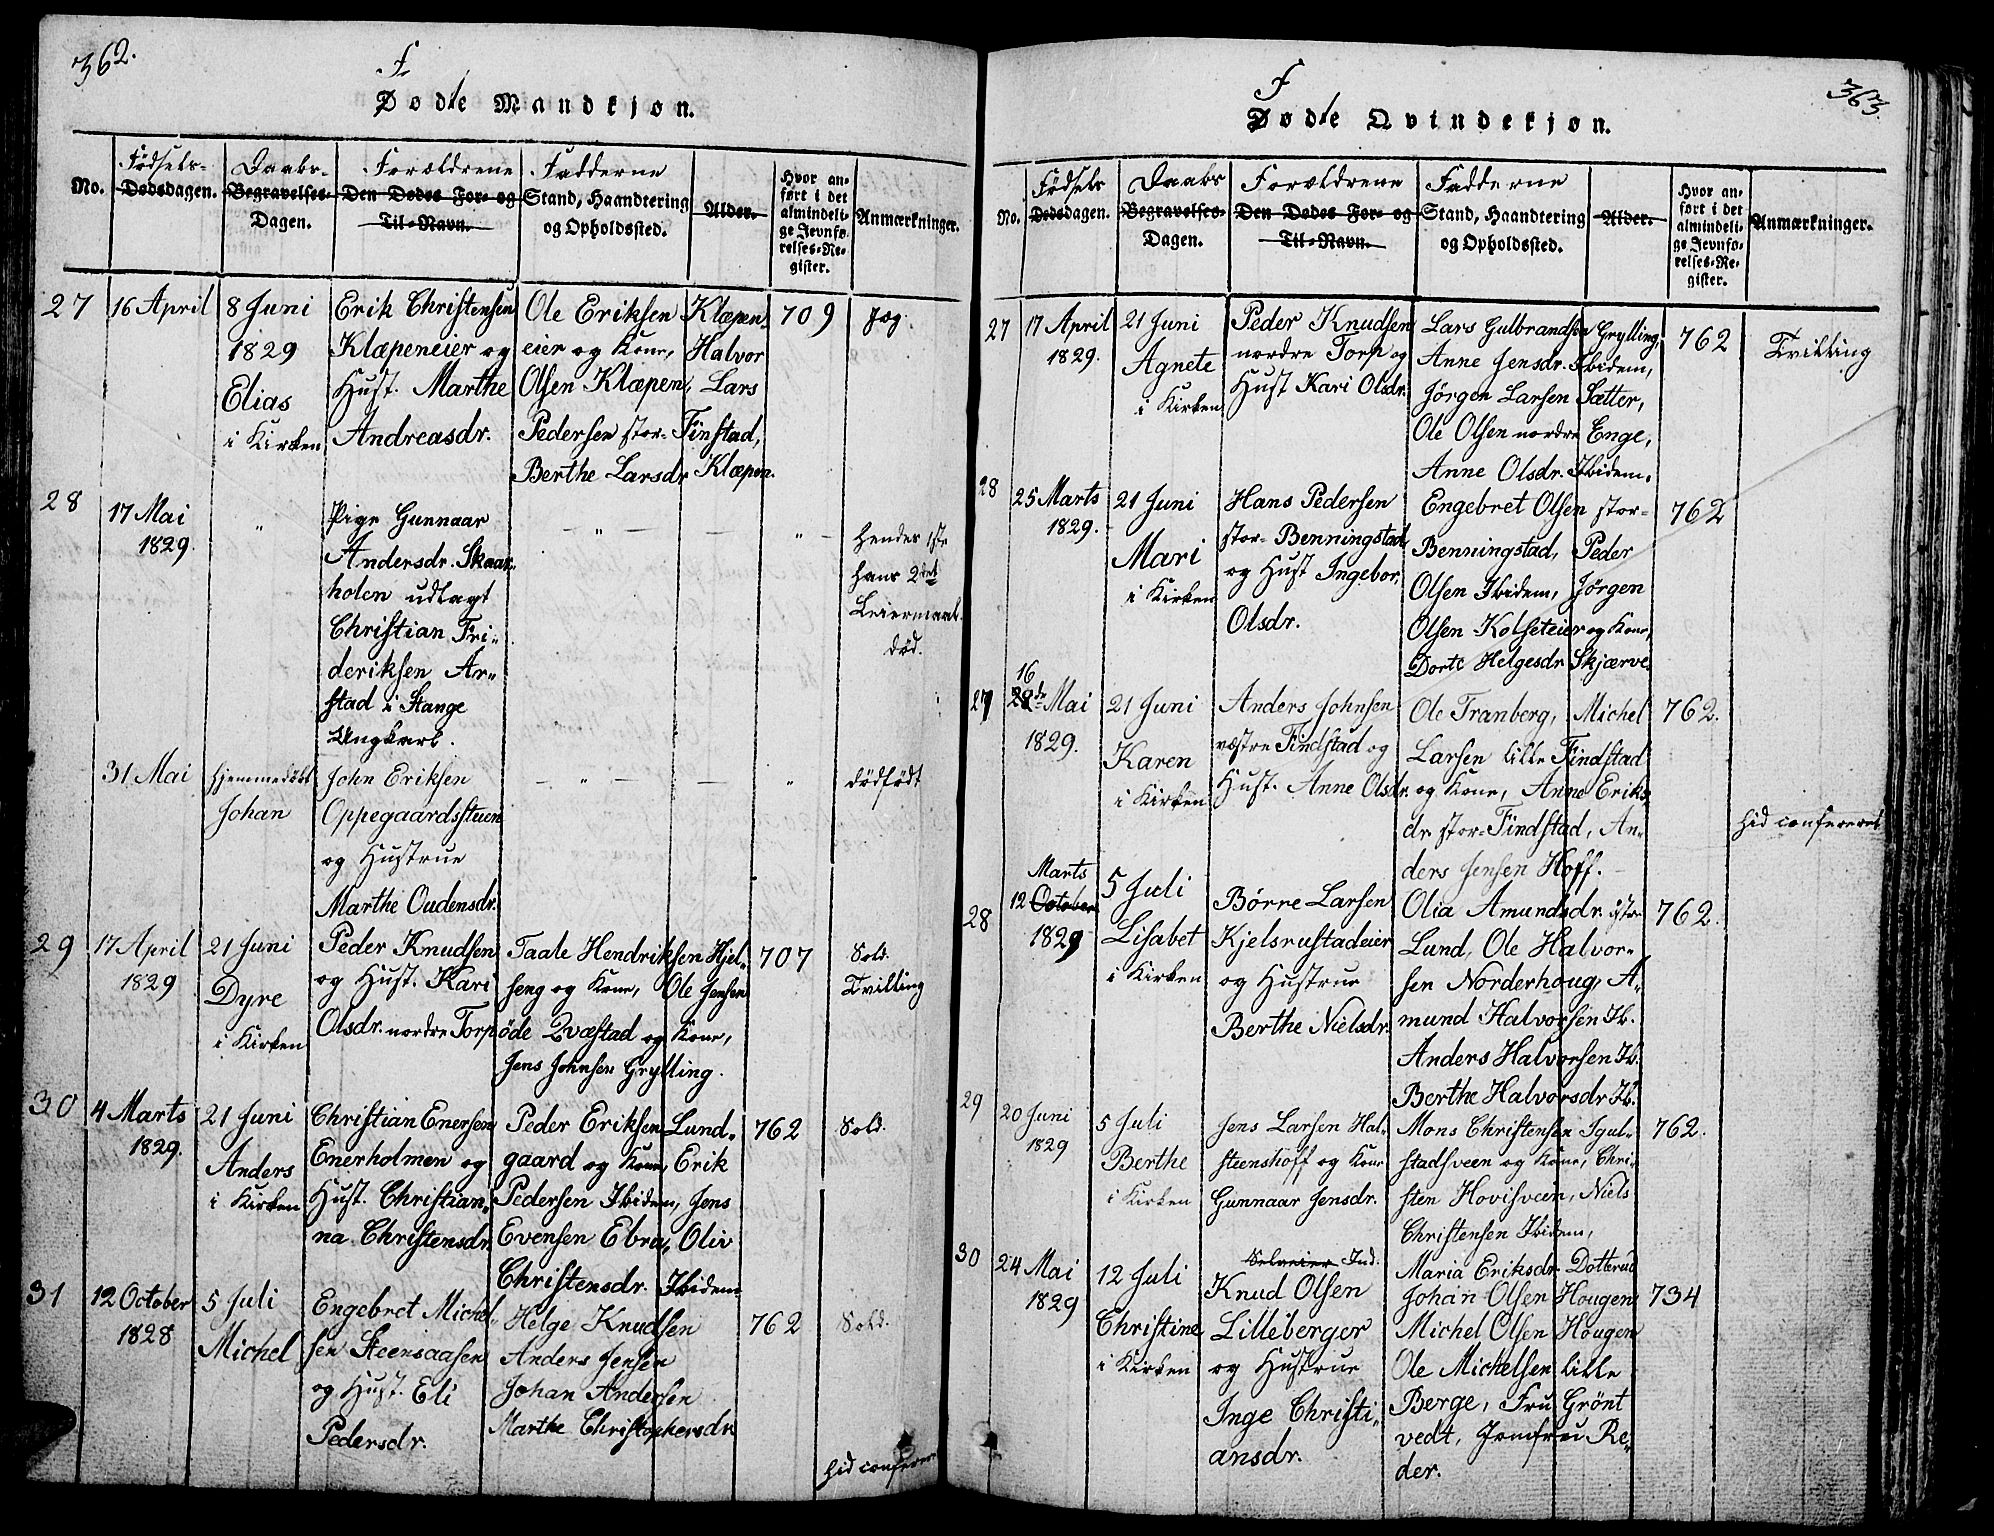 362.
F
Døde Mandkjøn.
No.
Fødsels-
Dødsdagen.
Daabs-
Begravelses-
Dagen.
Forældrene
Den Dødes For- og
Til-Navn.
Fadderne
Stand, Haandtering
og Opholdssted.
Alder.
Hvor an-
ført i det
almindeli-
ge Jevnfø-
relses-Re-
gister.
Anmærkninger.
27
16 April
8 Juni
1829
Elias
i Kirken
Erik Christensen
Klæpeneier og
Hust. Marthe
Andreasdr.
Ole Eriksen Klæpen-
eier og Kone, Halvor
Olsen Klæpen, Lars
Pedersen stor-Finstad,
Berthe Larsdr Klæpen.
709
Jæg.
28
17 Mai
1829.
"
Pige Gunnaar
Andersdr. Skaar-
holen udlagt
Christian Fri-
deriksen Ar-
stad i Stange
Ungkarl.
— " —
" —
Hendes 1ste
hans 2det
Leiermaal.
død.
31 Mai
hjemmedøbt
Johan
John Eriksen
Oppegaardsteien
og Hustrue
Marthe Oudensdr.
— " — — "
dødfødt
29
17 April
1829
21 Juni
Dyre
i Kirken
Peder Knudsen
og Hust. Kari
Olsdr. nordre Torp
Taale Hendriksen Hjel-
seng og Kone, Ole Jensen
øde Qvæstad og Kone,
Jens Johnsen Grylling.
707
Sold.
Tvilling
30
4 Marts
1829.
21 Juni
Anders
i Kirken
Christian Enersen
Enerholmen og
Hust. Christian-
na Christensdr
Peder Eriksen Lund-
gaard og Kone, Erik
Pedersen Ibidem, Jens
Evensen Ebru, Oliv
Christensdr. Ibidem
762
Sold.
31
12 October
1828
5 Juli
Michel
Engebret Michel-
sen Steensaasen
og Hust. Eli
Pedersdr.
Helge Knudsen
Anders Jensen
Johan Andersen
Marthe Christophersdr
762
Sold.
hid confereret
363.
F
Døde Qvindekjøn.
No.
Fødsels
Dødsdagen.
Daabs
Begravelses-
Dagen.
Forældrene
Den Dødes For- og
Til-Navn.
Fadderne
Stand, Haandtering
og Opholdssted.
Alder.
Hvor an-
ført i det
almindeli-
ge Jevnfø-
relses-Re-
gister.
Anmærkninger.
27
17 April
1829.
21 Juni
Agnete
i Kirken
Peder Knudsen
nordre Torp og
Hust Kari Olsdr.
Lars Gulbrandsen Grylling,
Anne Jensdr. Ibidem,
Jørgen Larsen Sætter,
Ole Olsen nordre Enge,
Anne Olsdr. Ibidem.
762
Tvilling
28
25 Marts
1829.
21 Juni
Mari
i Kirken
Hans Pedersen
stor-Benningstad,
og Hust Ingebor.
Olsdr.
Engebret Olsen stor-
Benningstad, Peder
Olsen Ibidem, Jørgen
Olsen Kolseteier og Kone,
Dorte Helgesdr Skjærve
762
27
16
28de Mai
1829.
21 Juni
Karen
i Kirken
Anders Johnsen
væstre Findstad og
Hust. Anne Olsdr.
Ole Tranberg, Michel
Larsen lille Findstad
og Kone, Anne Eriks
dr. stor-Findstad, An-
ders Jensen Hoff.
762.
hid confereret
28
Marts
12 October
1829
5 Juli
Lisabet
i Kirken
Børre Larsen
Kjelsrustadeier
og Hustrue
Berthe Nielsdr.
Olia Amundsdr. stor
Lund, Ole Halvor-
sen Norderhoug, A-
mund Halvorsen Ib.
Anders Halvorsen Ib.
Berthe Halvorsdr Ib.
762.
29
20 Juni
1829
5 Juli
Berthe
i Kirken
Jens Larsen Hal-
steenshoff og Kone
Gunnaar Jensdr.
Mons Christensen Igul-
stadsveen og Kone, Chri-
sten Hovisveen, Niels
Christensen Ibidem,
Maria Eriksdr. Dotterud
762.
30
24 Mai
1829
12 Juli
Christine
i Kirken
Selveier Ind.
Knud Olsen
Lilleberger
og Hustrue
Inge Christi-
ansdr.
Johan Olsen Hougen
Michel Olsen Hougen
Ole Michelsen lille
Berge, Fru Grønt
vedt, Jomfru Re-
der.
734